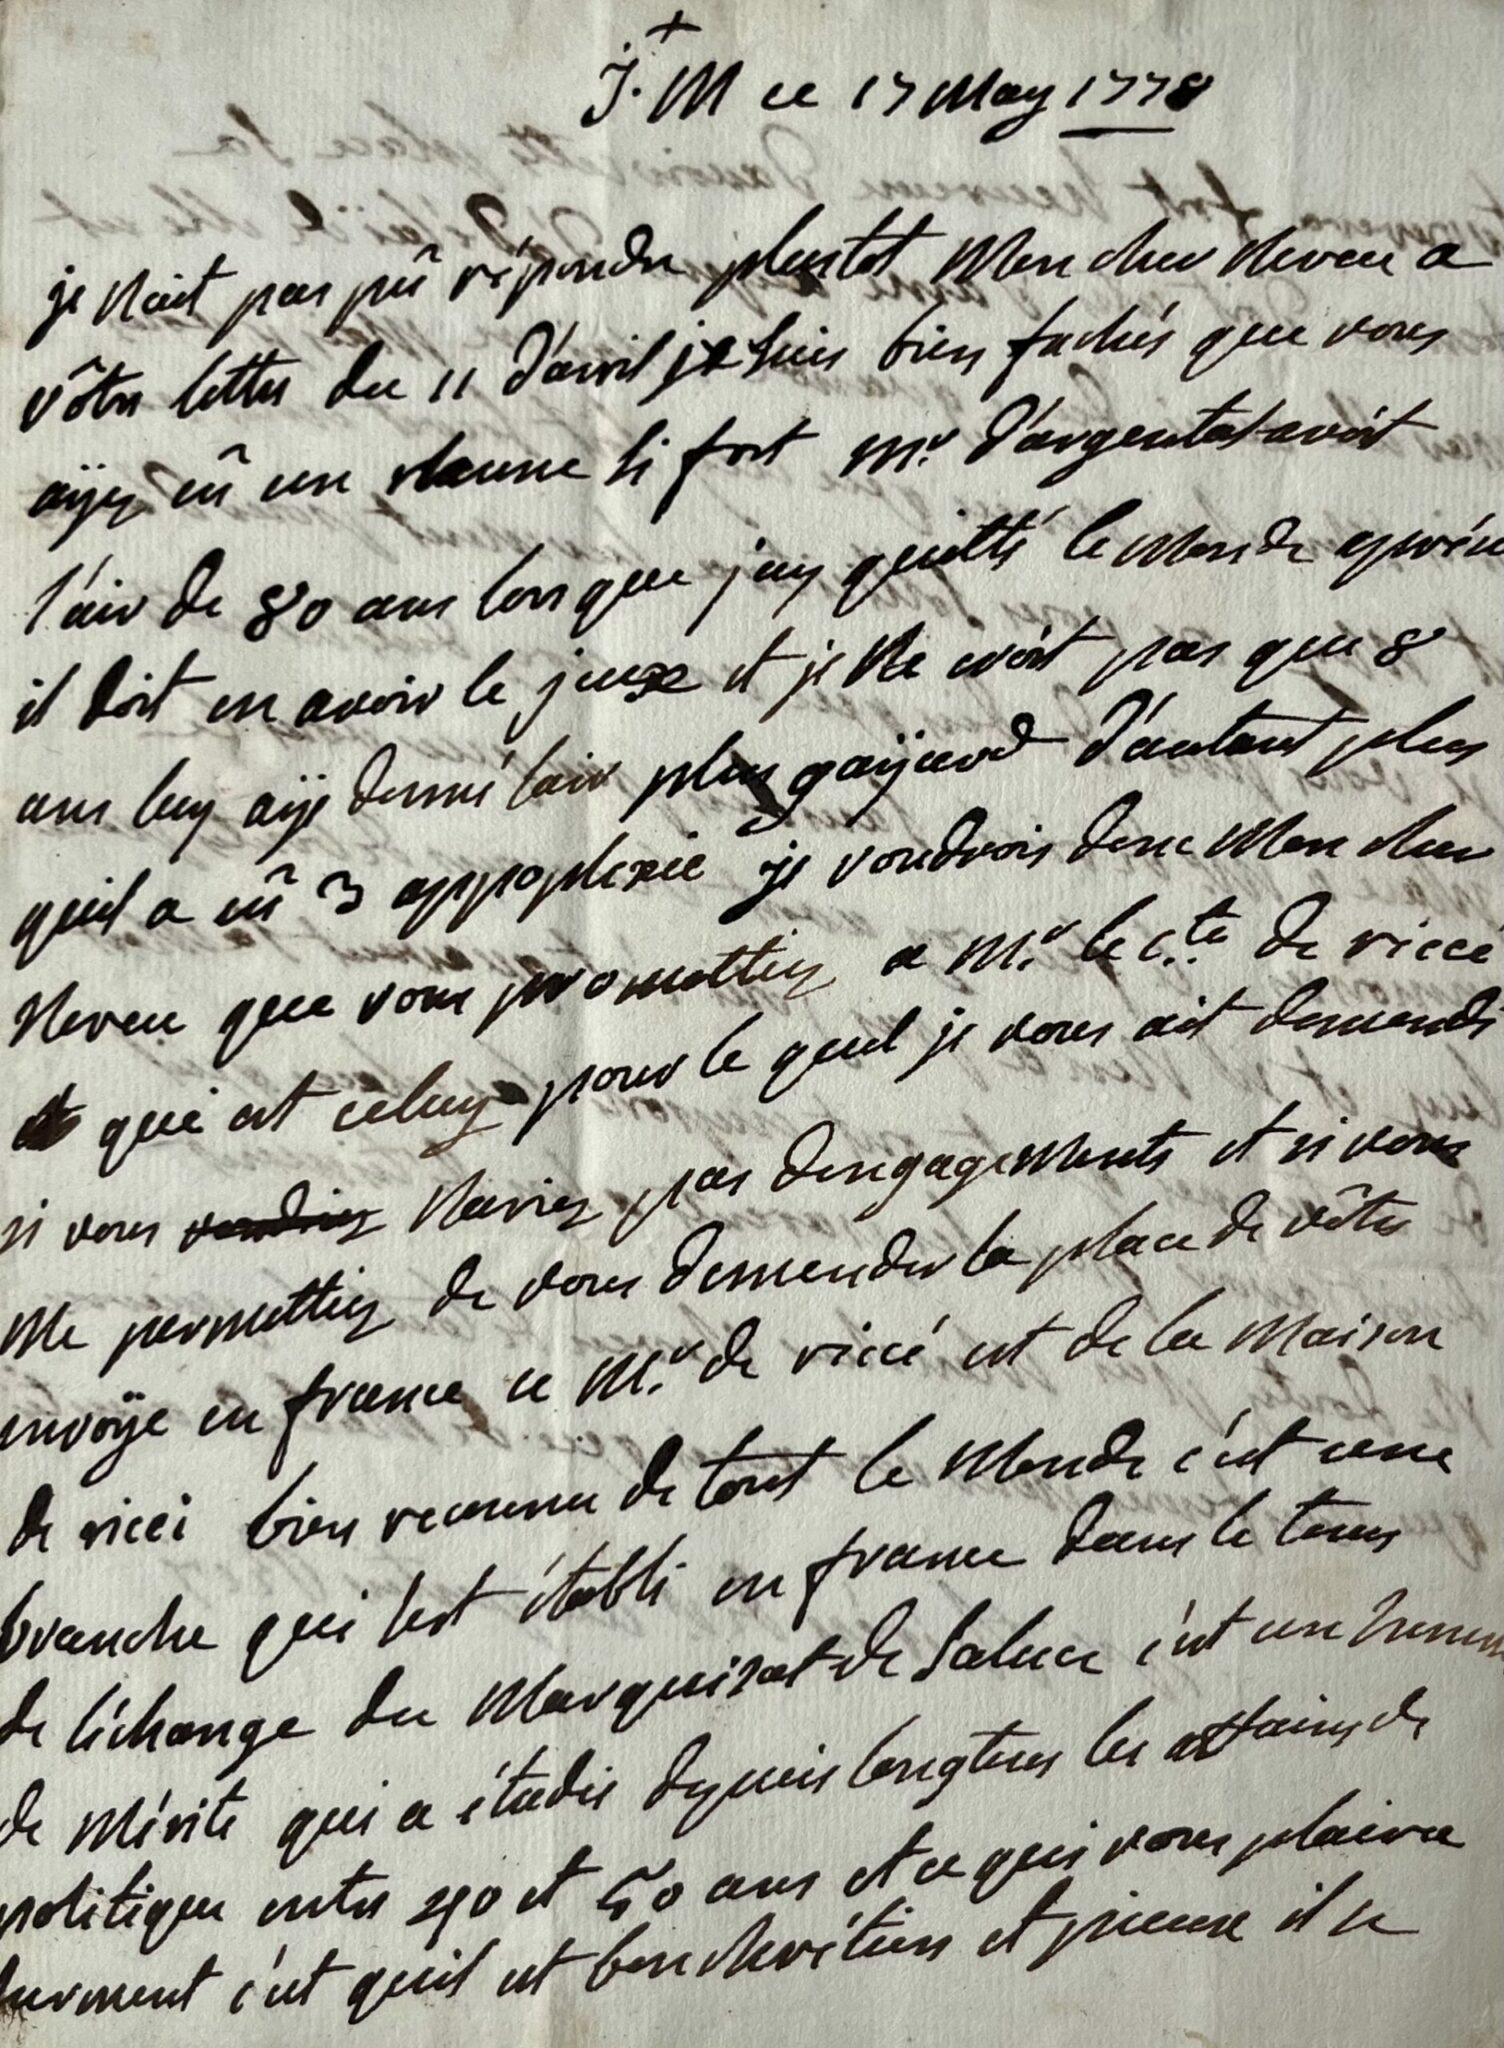 +
J. M ce 17 May 1778
je nait pas pû répondre plustot mon cher neveu a
vôtre lettre du 11 d'avril je suis bien fachés que vous
aÿez eû un rhume si fort mr. d'argental avoit
l'air de 80 ans lorsque j'ay quitté le monde
il doit en avoir le jeuse et je ne croit pas que 8
ans luy aÿe donné l'air plus gaÿard d'autant plus
quil a eû 3 appoplexie je voudrois donc mon cher
neveu que vous promettiez a mr. le cte. de riccé
qui est celuy pour le quel je vous ait demendé
si vous voudriez naviez pas dengagements et si vous
me permettiez de vous demender la place de vôtre
envoÿe en france ce mr. de riccé est de la maison
de ricci bien reconnu de tout le monde c'est une
branche qui s'est établi en france dans le tems
de l'échange du marquisat de Saluce c'est un homme
de mérite qui a étudié depuis longtems les affaires de
politique entre 40 et 50 ans et ce qui vous plaira
surment c'est quil est bon chrétien et pieux il ne